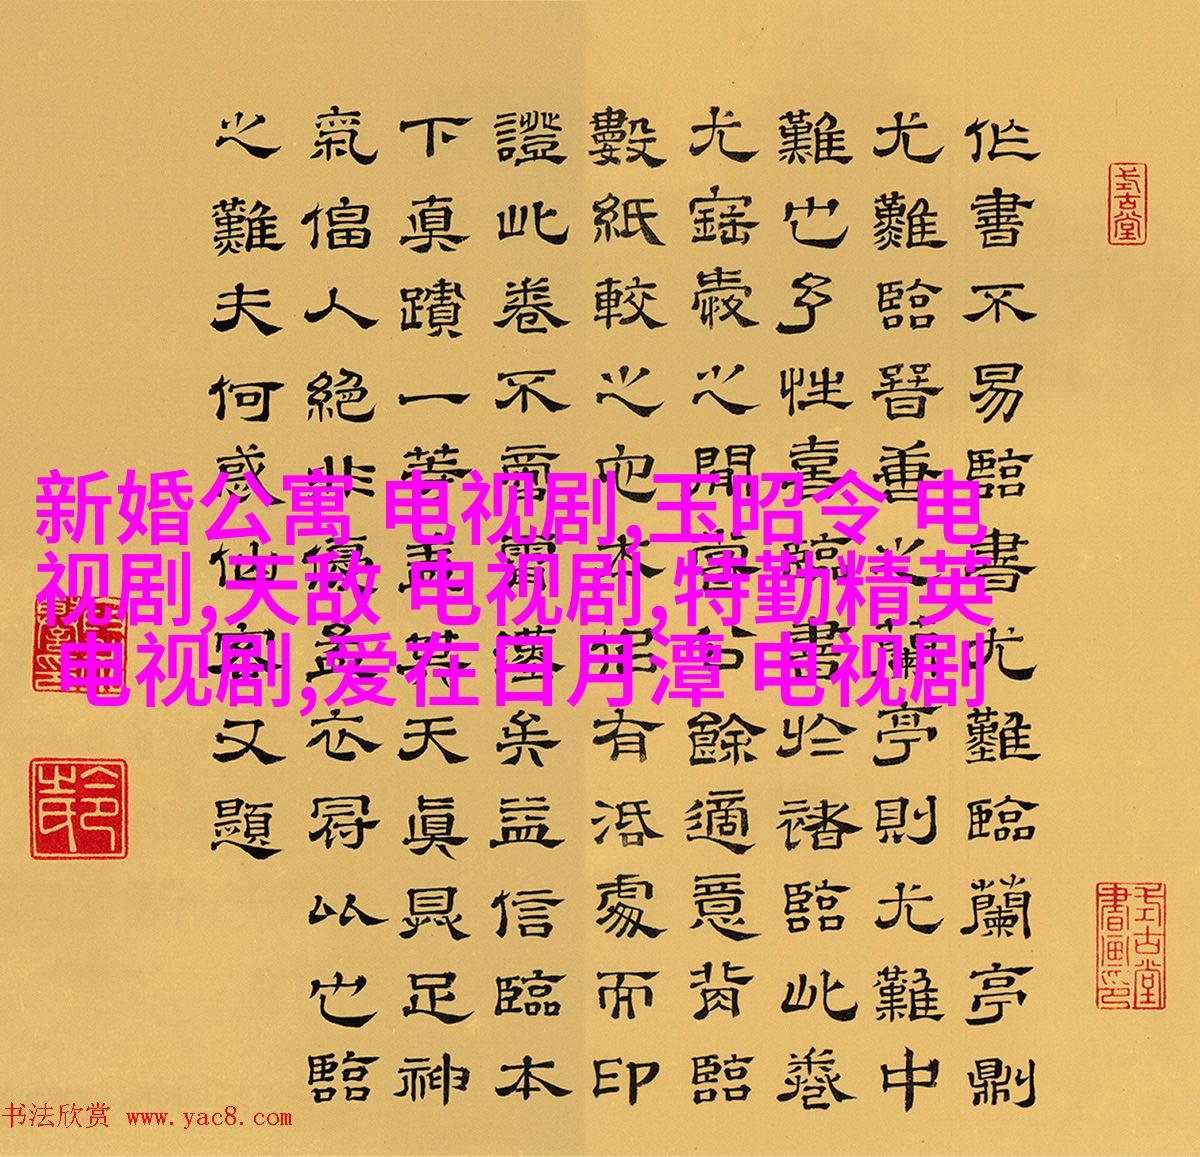 作書不易臨書尤難臨蘭亭則
尤難臨晉善之蘭亭則尤難中
難也予性喜臨書於褚臨此卷
尤寶愛之閒嘗公餘適意背臨
數紙較之他本有活處而印
證此卷不啻霄壤矣益信臨本
下真蹟一等蓋其天真具足神
氣偪人絕非優孟衣冠比也臨
之難夫何又題
新婚公寓 电视剧,玉昭令 电
视剧,天敌 电视剧,特勤精英
电视剧,爱在日月潭 电视剧
书法欣赏 www.yac8.com